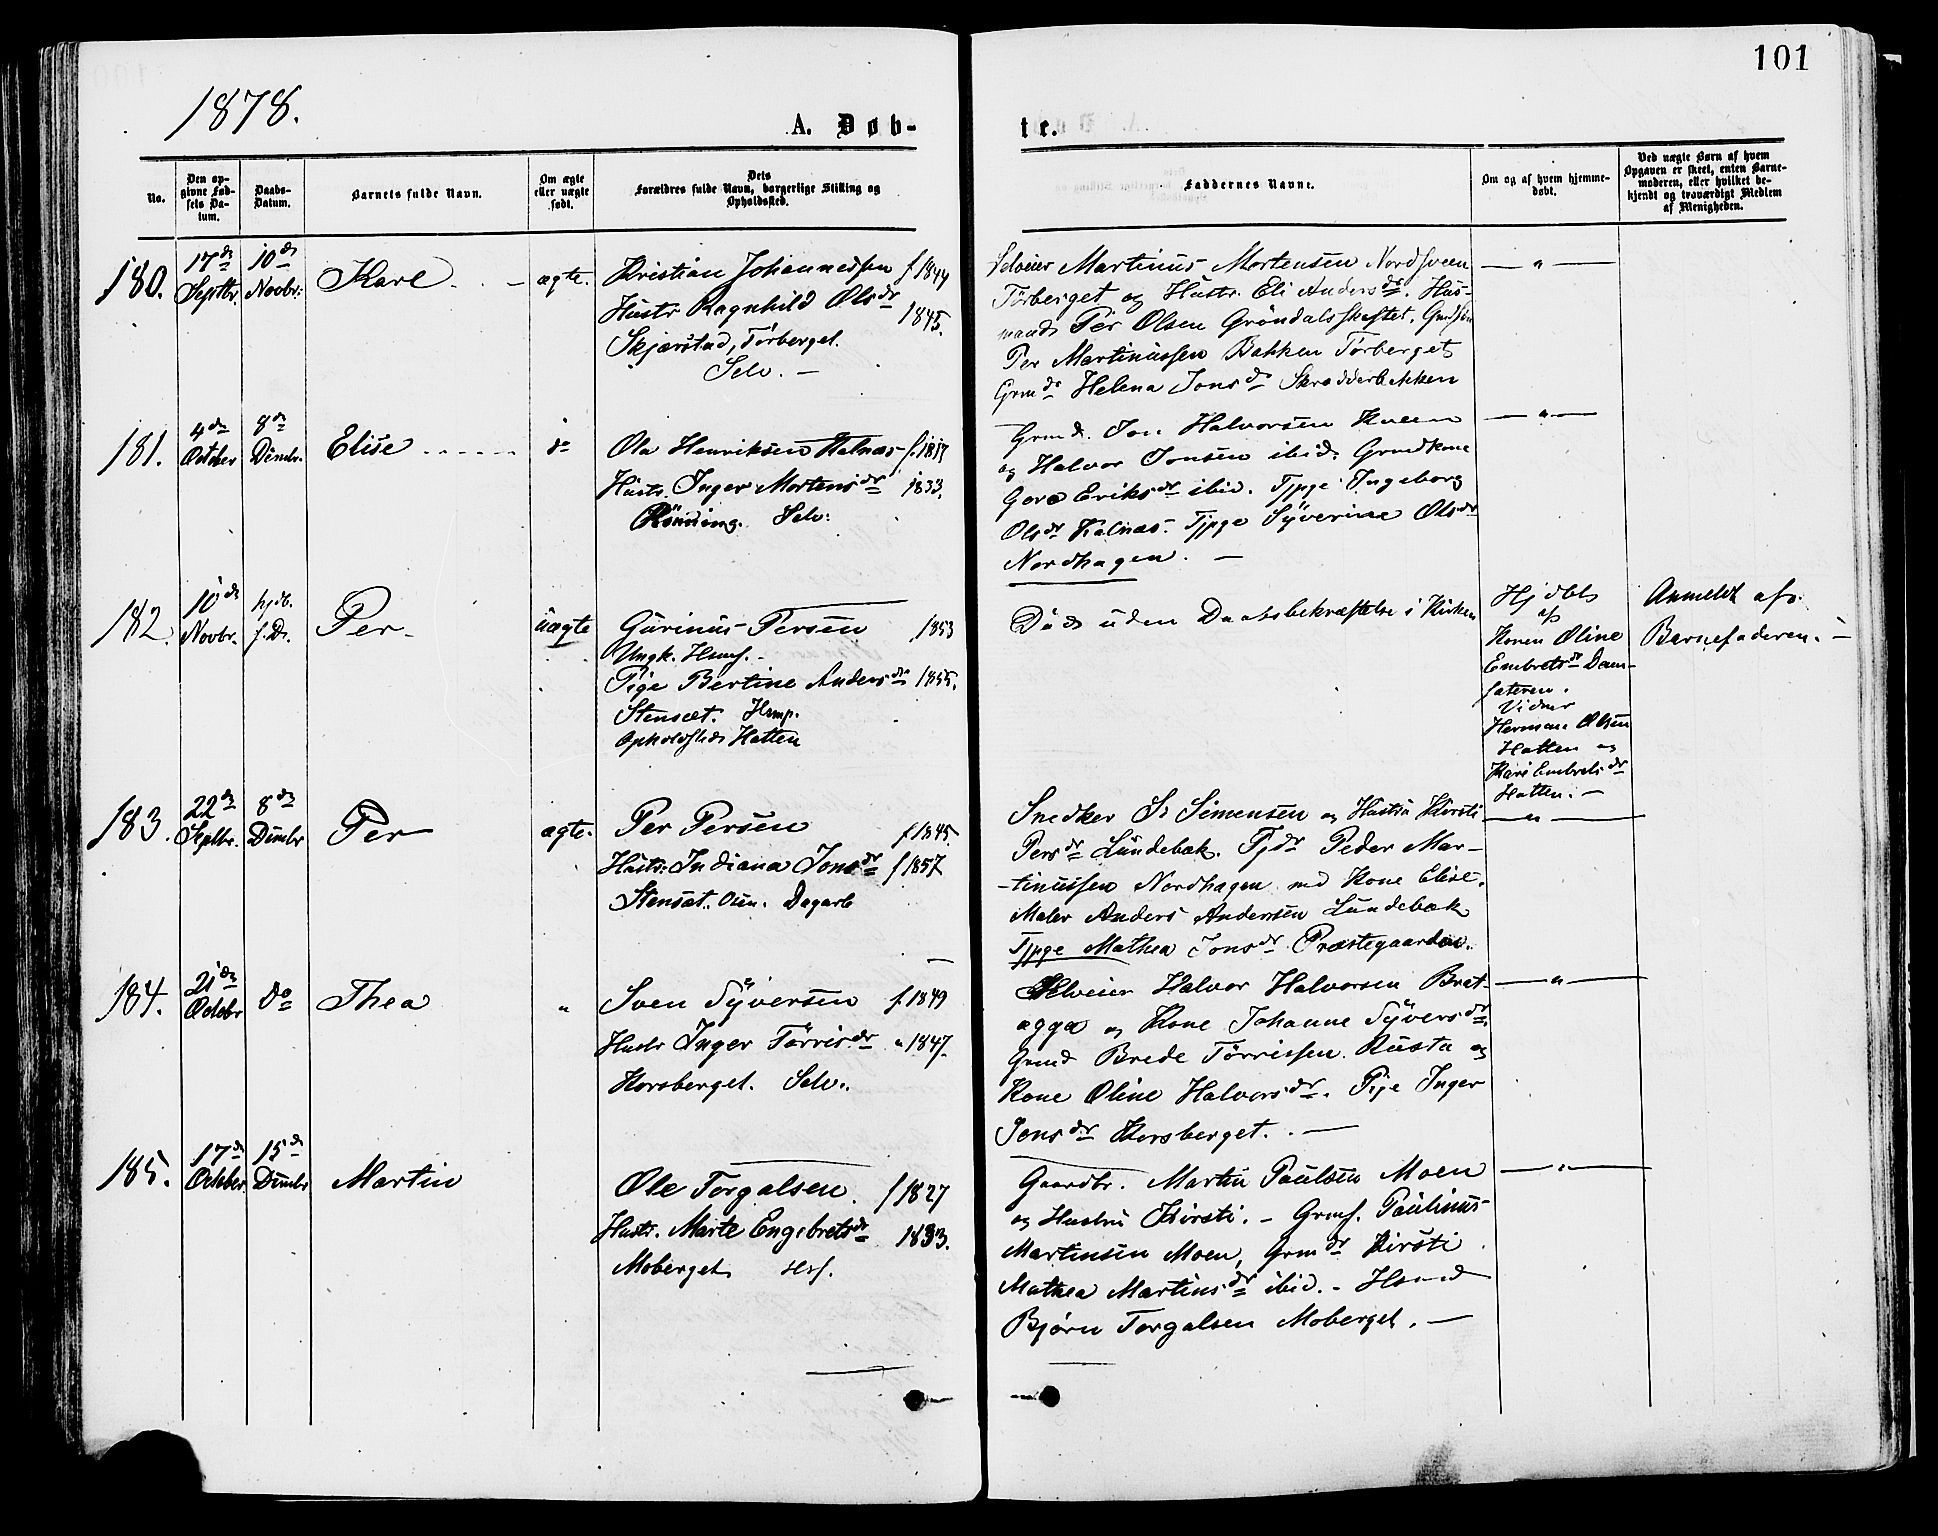 101
1878.
A. Døb-
te.
No.
Den op-
givne Fød-
sels Da-
tum.
Daabs-
Datum.
Barnets fulde Navn.
Om ægte
eller uægte
født.
Dets
Forældres fulde Navn, borgerlige Stilling og
Opholdssted.
Faddernes Navne.
Om og af hvem hjemme-
døbt.
Ved uægte Børn af hvem
Opgaven er skeet, enten Barne-
moderen, eller hvilket be-
kjendt og troværdigt Medlem
af Menigheden.
180.
17de
Septbr.
10de
Novbr.
Karl.
ægte.
Kristian Johannessen f 1844
Hustr Ragnhild Olsdr 1845.
Skjærstad, Törberget.
Selv. —
Selveier Martinus Mortensen Nordsveen
Törberget og Hustr. Eli Andersdr. Hus-
mand Per Olsen Gröndalsskeftet.
Per Martinussen Bakken Törberget
Grmdr Helena Jonsdr Skrædderbakken
— " —
181.
4de
October
8de
Dembr.
Elise
do
Ola Henriksen Kalnæs f. 1817
Hustr. Inger Mortensdr 1833.
Rönning. Selv.
Grmd. Jon Halvorsen Kveen
og Halvor Jonsen ibid. Grmdkone
Goro Eriksdr ibid. Tjpge Ingeborg
Olsdr Kalnæs. Tjpge Syverine Olsdr
Nordhagen. —
— " —
182.
10de
Novbr.
hjdb.
s. D.
Per
uægte
Gurinus Persen 1853
Ungk. Hsmf.
Pige Bertine Andersdr 1855.
Stensæt. Hsmp.
Opholdssted Hatten
Död uden Daabsbekræftelse i Kirken
Hjdbt
af
Konen Oline
Embretsdr Dam-
sæteren.
Vidner
Herman Olsen
Hatten og
Kari Embretsdr
Hatten. —
Anmeldt af
Barnefaderen. —
183.
22de
Septbr.
8de
Dembr
Per
ægte.
Per Persen f 1845.
Hustr: Indiana Jonsdr f 1857
Stensæt. Dagarb
Snedker S. Simensen og Hustru Kirsti
Persdr Lundebæk. Peder Mar-
tinussen Nordhagen med Kone Elise.
Maler Anders Andersen Lundebæk
Tjpge Mathea Jonsdr Præstegaarden.
— " —
184.
21de
Octobr
do
Thea
"
Sven Syversen f. 1849
Hustr Inger Törrisdr " 1847.
Korsberget. Selv.
Selveier Halvor Halvorsen Brat-
agga og Kone Johanne Syversdr.
Grmd Brede Törrissen Rusta og
Kone Oline Halvorsdr. Pige Inger
Jonsdr Korsberget. —
— " —
185.
17de
Octbr.
15de
Dembr
Martin
Ole Torgalsen. f 1827
Hustr. Marte Engebretsdr 1833.
Moberget Hsf.
Gaardbr. Martin Paulsen Moen
og Hustru Kirsti. – Grmf. Paulinus
Martinsen Moen, Grmdr Kirsti
Mathea Martinsdr ibid. – Hsmd
Björn Torgalsen Moberget. —
— " —